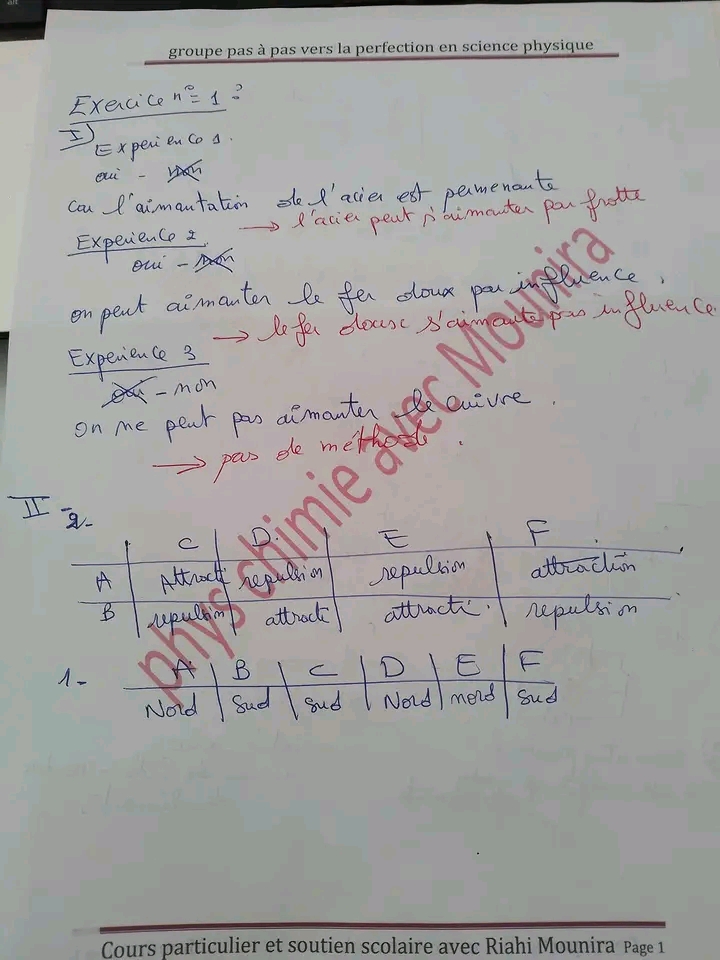 groupe pas à pas vers la perfection en science physique
Exercice n° = 1 :
I) Expérience 1.
oui - non
car l'aimantation de l'acier est permenante
→ l'acier peut s'aimanter par frotte
Expérience 2
oui - non
on peut aimanter le fer doux par influence.
→ le fer doux s'aimante pas influence.
Expérience 3
oui - non
on ne peut pas aimanter le cuivre.
→ pas de méthode.
II - 2-
C D. E F
A Attracti repulsion repulsion attraction
B repulsion attracti attracti. repulsion
1- A B C D E F
Nord Sud sud Nord nord Sud
phys chimie avec Mounira
Cours particulier et soutien scolaire avec Riahi Mounira Page 1